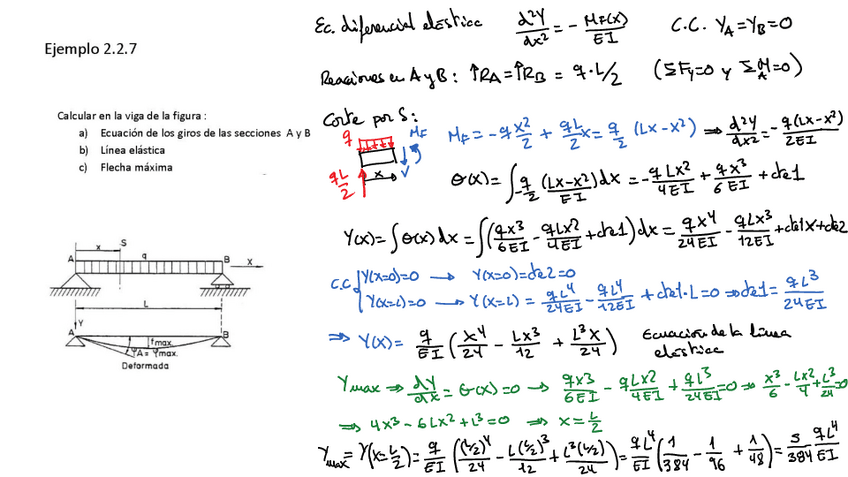 Ejemplo 2.2.7
Calcular en la viga de la figura :
a) Ecuación de los giros de las secciones A y B
b) Línea elástica
c) Flecha máxima
x S
A q B x
L
Y
A fmax. B
φA = φmax.
Deformada
Ec. diferencial elástica d²Y/dx² = - MF(x)/EI C.C. YA = YB = 0
Reacciones en A y B : ↑RA = ↑RB = q·L/2 (ΣFy=0 y ΣMA=0)
Corte por S :
q MF
qL/2 x V
MF = -qx²/2 + qL/2 x = q/2 (Lx-x²) ⇒ d²Y/dx² = -q(Lx-x²)/2EI
θ(x) = ∫ -q/2 (Lx-x²)/EI dx = -qLx²/4EI + qx³/6EI + cte1
Y(x) = ∫θ(x)dx = ∫(qx³/6EI - qLx²/4EI + cte1)dx = qx⁴/24EI - qLx³/12EI + cte1x + cte2
C.C. { Y(x=0)=0 → Y(x=0)=cte2=0
Y(x=L)=0 → Y(x=L) = qL⁴/24EI - qL⁴/12EI + cte1·L=0 ⇒ cte1 = qL³/24EI
⇒ Y(x) = q/EI (x⁴/24 - Lx³/12 + L³x/24) Ecuación de la línea elástica
Ymax ⇒ dY/dx = θ(x) = 0 → qx³/6EI - qLx²/4EI + qL³/24EI = 0 ⇒ x³/6 - Lx²/4 + L³/24 = 0
⇒ 4x³ - 6Lx² + L³ = 0 ⇒ x = L/2
Ymax = Y(x=L/2) = q/EI ((L/2)⁴/24 - L(L/2)³/12 + L³(L/2)/24) = qL⁴/EI (1/384 - 1/96 + 1/48) = 5/384 qL⁴/EI